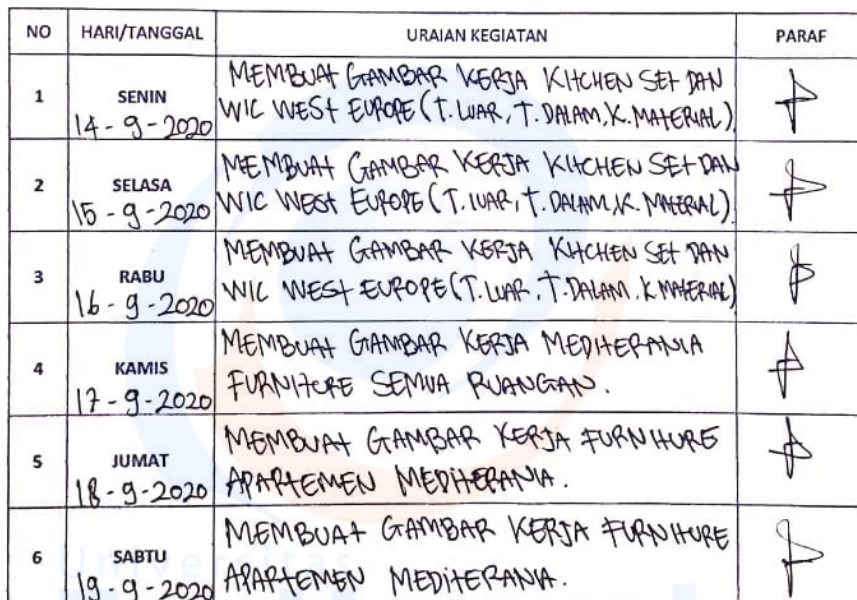 NO HARI/TANGGAL URAIAN KEGIATAN PARAF
1 SENIN 14-9-2020 MEMBUAT GAMBAR KERJA KITCHEN SET DAN
WIC WEST EUROPE (T. LUAR, T. DALAM, K. MATERIAL)
2 SELASA 15-9-2020 MEMBUAT GAMBAR KERJA KITCHEN SET DAN
WIC WEST EUROPE (T. LUAR, T. DALAM, K. MATERIAL)
3 RABU 16-9-2020 MEMBUAT GAMBAR KERJA KITCHEN SET DAN
WIC WEST EUROPE (T. LUAR, T. DALAM, K MATERIAL)
4 KAMIS 17-9-2020 MEMBUAT GAMBAR KERJA MEDITERANIA
FURNITURE SEMUA RUANGAN.
5 JUMAT 18-9-2020 MEMBUAT GAMBAR KERJA FURNITURE
APARTEMEN MEDITERANIA.
6 SABTU 19-9-2020 MEMBUAT GAMBAR KERJA FURNITURE
APARTEMEN MEDITERANIA.
Universitas